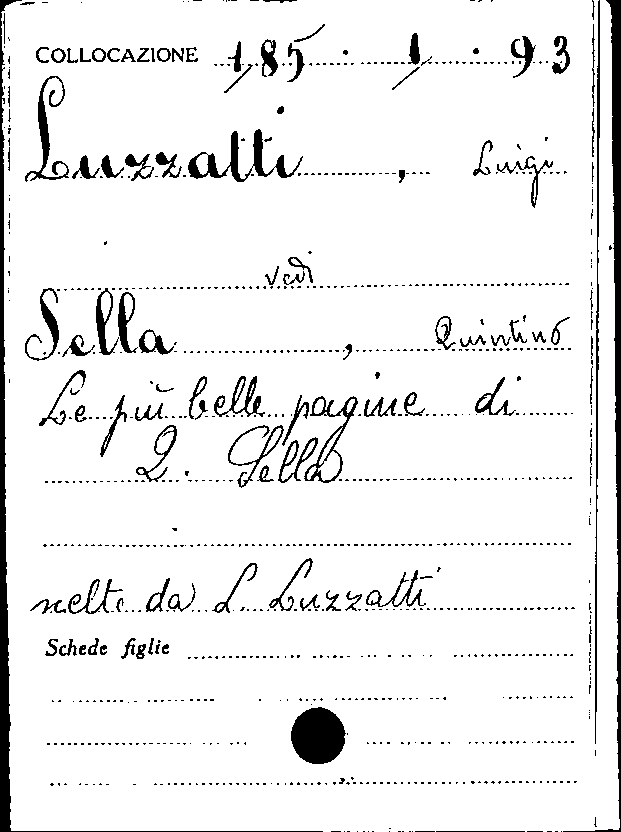 COLLOCAZIONE 185. 1. 93
Luzzatti, Luigi
vedi
Sella, Quintino
Le più belle pagine di
Q. Sella
scelte da L. Luzzatti
Schede figlie